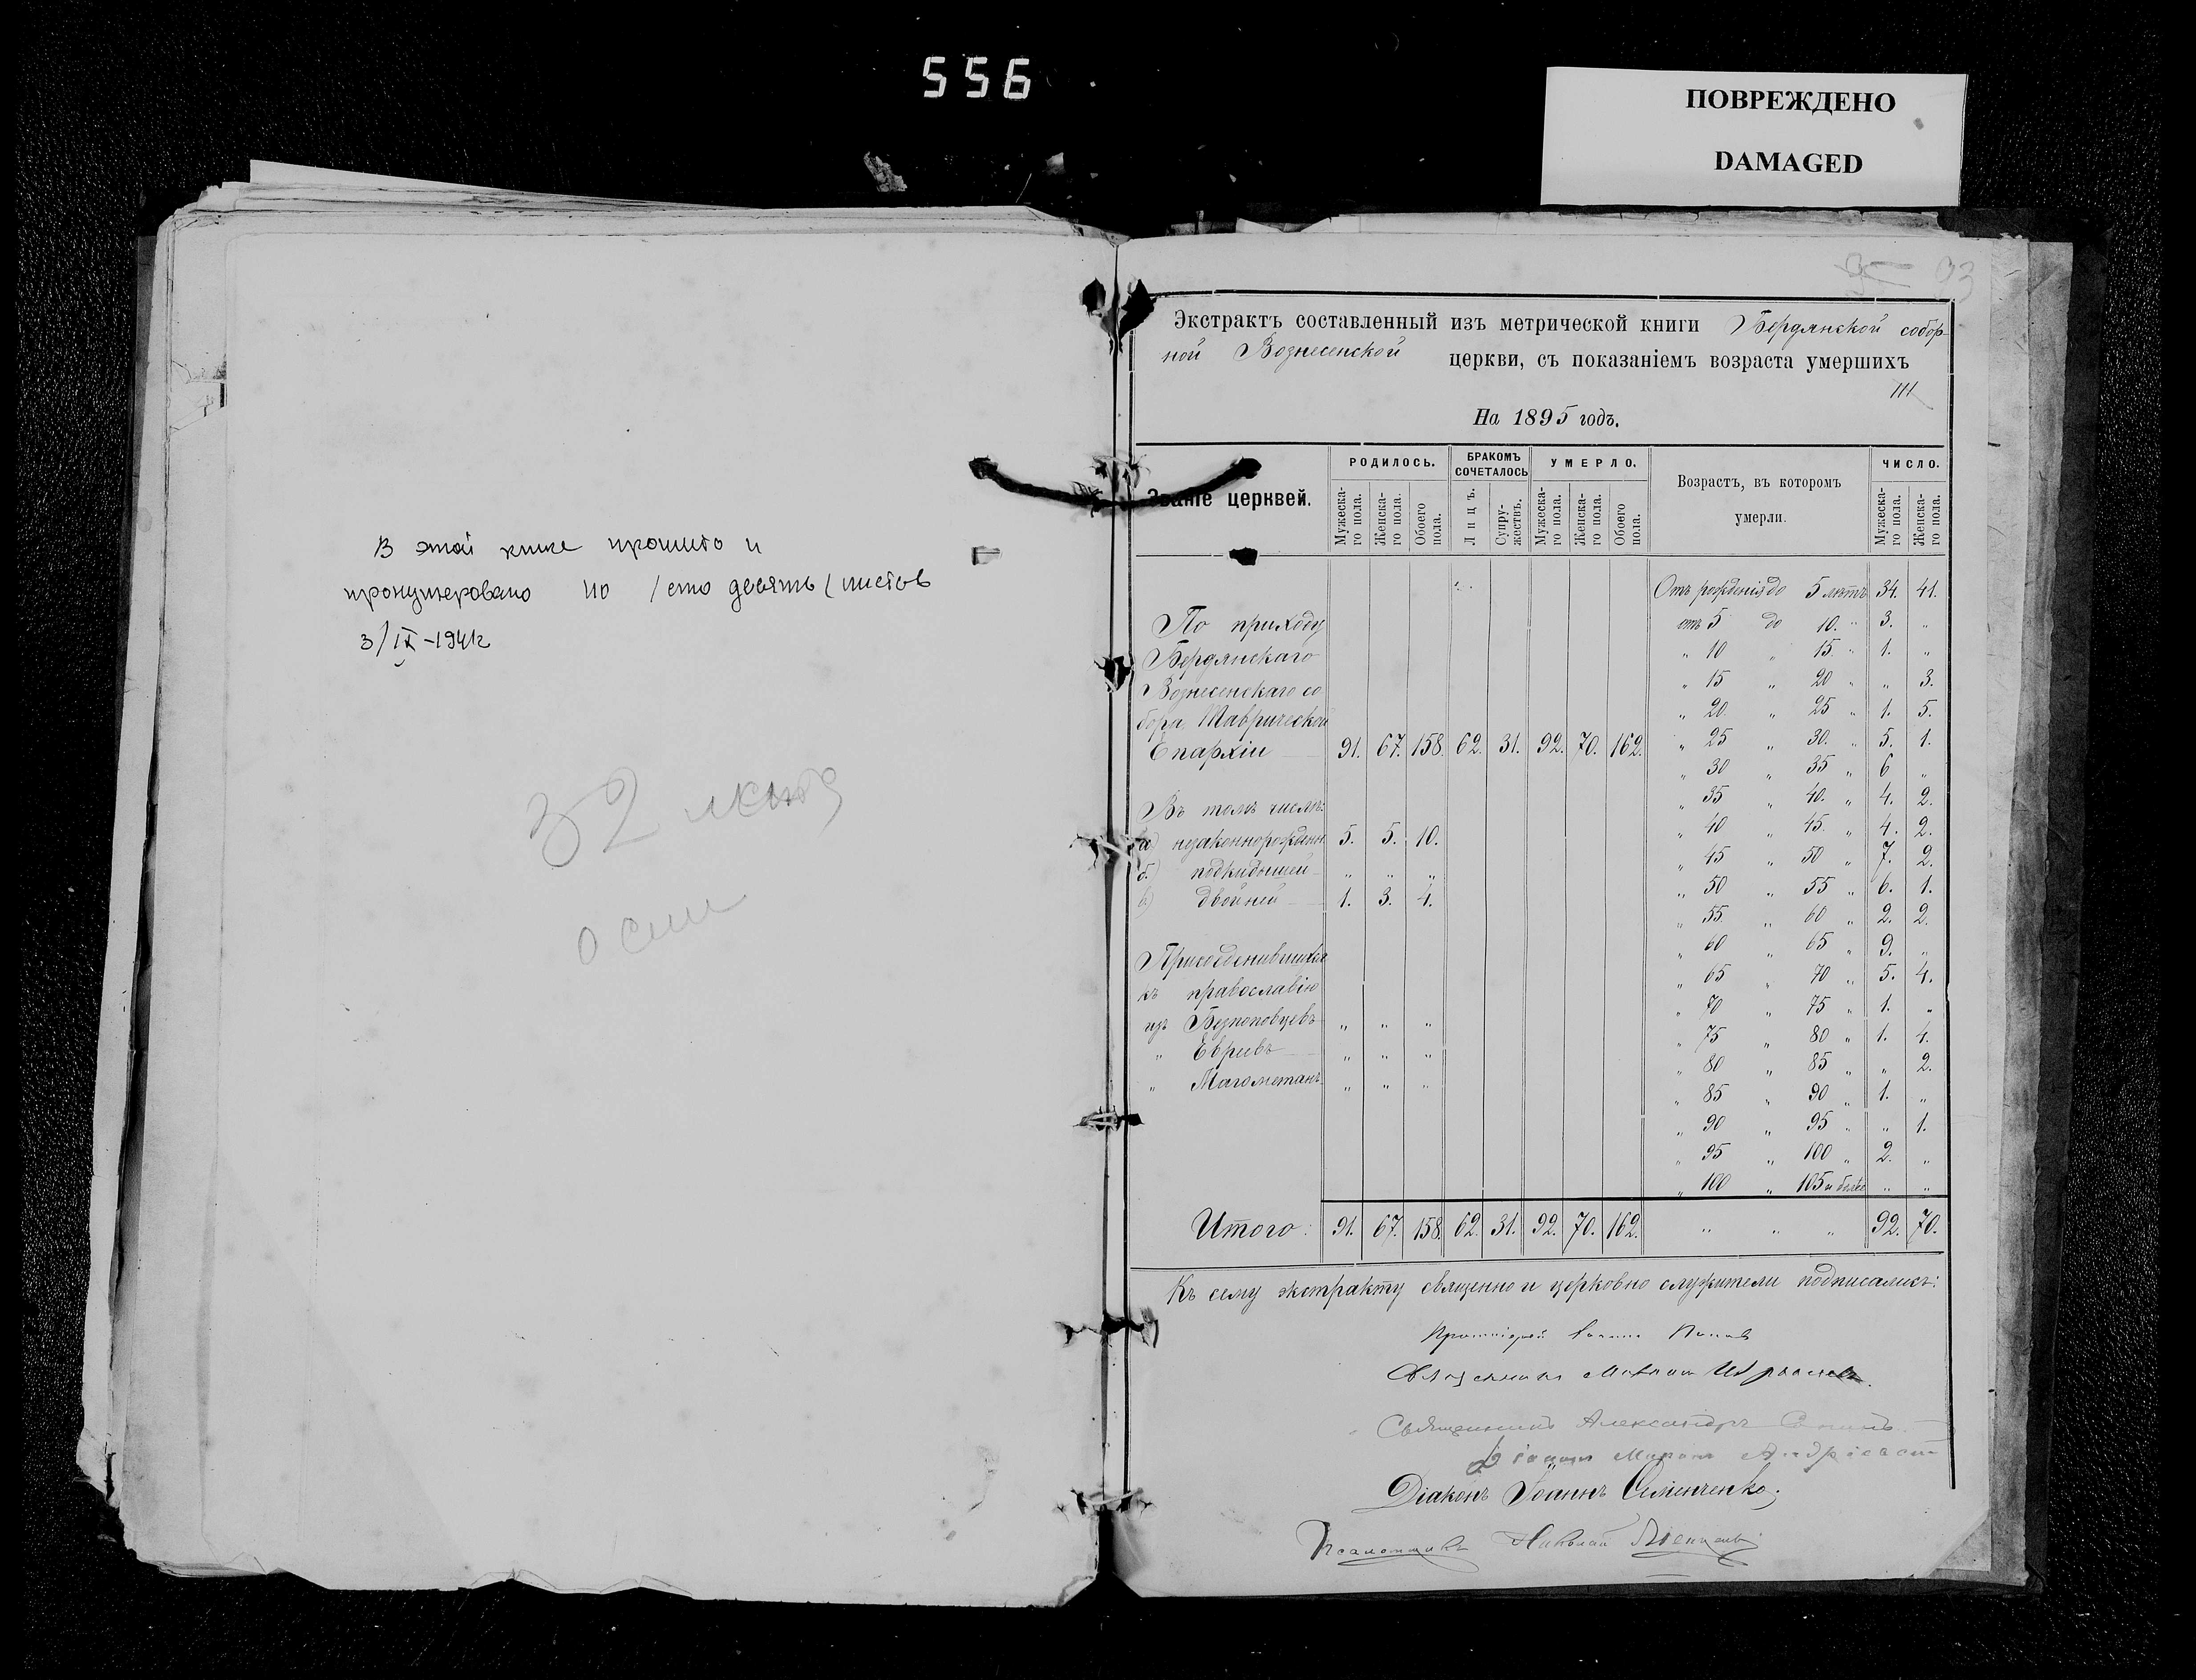 556
ПОВРЕЖДЕНО
DAMAGED
В этой книге прошито и
пронумеровано 110 /сто десять/ листов
3/IX-1941г
32
95 93
Экстрактъ составленный изъ метрической книги Бердянской собор-
ной Вознесенской церкви, съ показаніемъ возраста умершихъ
111
На 1895 годъ.
Званіе церквей. РОДИЛОСЬ. БРАКОМЪ СОЧЕТАЛОСЬ УМЕРЛО. Возрастъ, въ которомъ умерли. ЧИСЛО.
Мужеска-го пола. Женска-го пола. Обоего пола. Лицъ. Супру-жествъ. Мужеска-го пола. Женска-го пола. Обоего пола. Мужеска-го пола. Женска-го пола.
Отъ рожденія до 5 лѣтъ 34. 41.
По приходу отъ 5 до 10. " 3. "
Бердянскаго " 10 " 15. " 1. "
Вознесенскаго со " 15 " 20 " " 3.
бора Таврической " 20. " 25 " 1. 5.
Епархіи 91. 67. 158. 62. 31. 92. 70. 162. " 25 " 30. " 5. 1.
" 30 " 35 " 6 "
Въ томъ числѣ: " 35 " 40. " 4. 2.
а) незаконнорожден. 5. 5. 10. " 40 " 45. " 4. 2.
" 45 " 50 " 7. 2.
б) подкидышей " " " " 50 " 55 " 6. 1.
в) двойней 1. 3. 4. " 55 " 60 " 2. 2.
" 60 " 65 " 9. "
Присоединившихся
къ православію " 65 " 70 " 5. 4.
изъ Безпоповцевъ " " " " 70 " 75 " 1. "
" Евреевъ " " " " 75 " 80 " 1. 4.
" Магометанъ " " " " 80 " 85 " " 2.
" 85 " 90 " 1. "
" 90 " 95 " " 1.
" 95 " 100 " 2. "
" 100 " 105 и болѣе " "
Итого: 91. 67. 158. 62. 31. 92. 70. 162. " " " 92. 70.
Къ сему экстракту священно и церковно служители подписались:
Протоіерей Попов
Священникъ
Священникъ Александръ
Діаконъ Іоаннъ Семенченко.
Псаломщикъ Николай